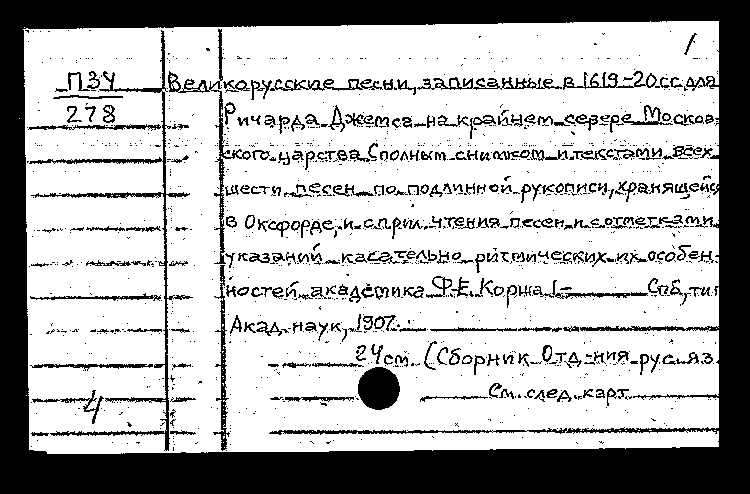 1
ПЗУ Великорусские песни, записанные в 1619-20 гг. для
278 Ричарда Джемса на крайнем севере Москов-
ского царства С полным снимком и текстами всех
шести песен по подлинной рукописи, хранящейс
в Оксфорде, и с прил. чтения песен и с отметками
указаний касательно ритмических их особен-
ностей академика Ф.Е. Корша [-    Спб, тип
Акад. наук, 1907.
24 см. (Сборник Отд-ния рус. яз.
4 См. след. карт